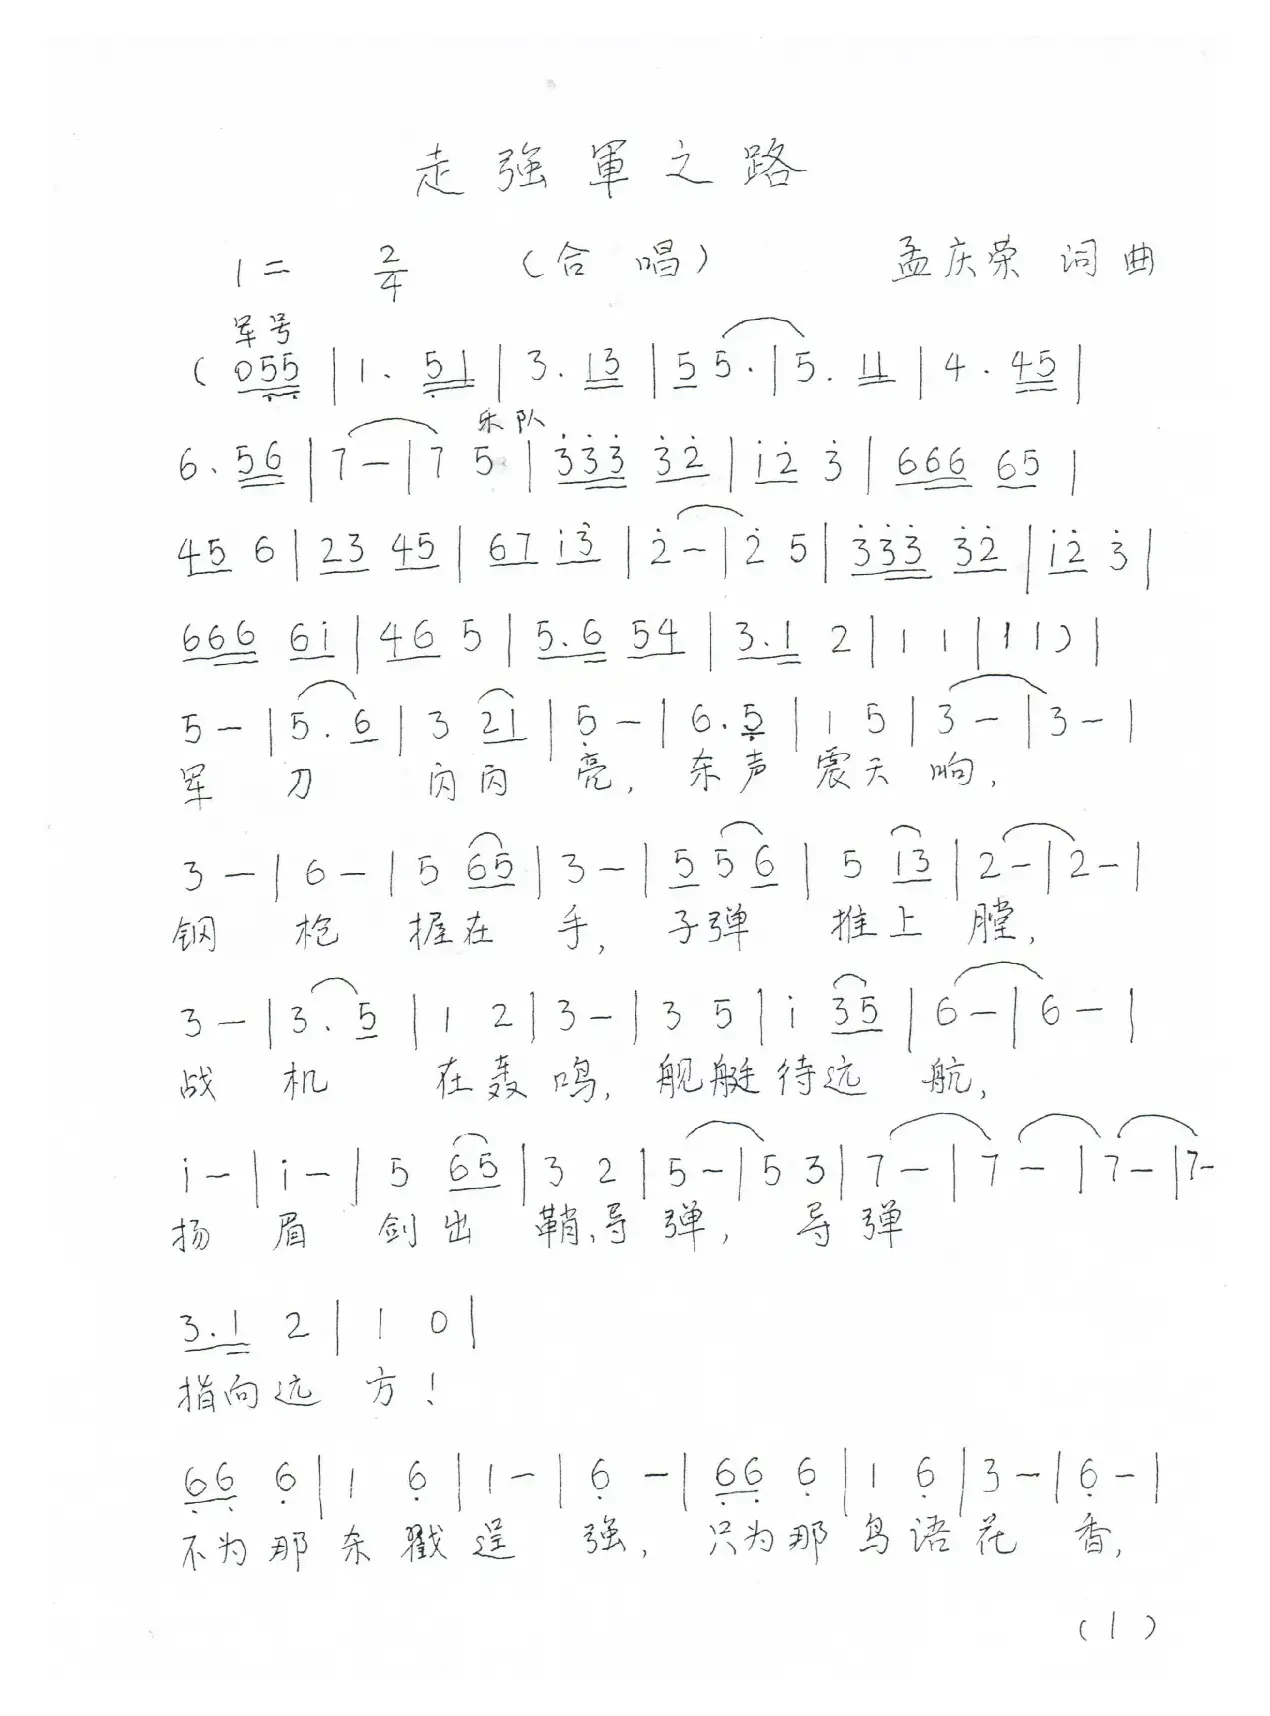 走強軍之路
1= 2/4 （合唱） 孟庆荣 词曲
军号
( 055 | 1. 51 | 3. 13 | 5 5. | 5. 11 | 4. 45 |
乐队
6. 56 | 7 — | 7 5 | 3̇3̇3̇ 3̇2̇ | 1̇2̇ 3̇ | 666 65 |
45 6 | 23 45 | 67 1̇3̇ | 2̇ — | 2̇ 5 | 3̇3̇3̇ 3̇2̇ | 1̇2̇ 3̇ |
666 61̇ | 46 5 | 5.6 54 | 3.1 2 | 1 1 | 1 1 ) |
5 — | 5. 6 | 3 21 | 5̣ — | 6. 5̣ | 1 5 | 3 — | 3 — |
军 刀 闪闪 亮，杀声 震天 响，
3 — | 6 — | 5 65 | 3 — | 5 5 6 | 5 13 | 2 — | 2 — |
钢 枪 握在 手，子弹 推上 膛，
3 — | 3. 5 | 1 2 | 3 — | 3 5 | 1̇ 35 | 6 — | 6 — |
战 机 在轰鸣，舰艇待远 航，
1̇ — | 1̇ — | 5 65 | 3 2 | 5 — | 5 3 | 7 — | 7 — | 7 — | 7 —
扬 眉 剑出 鞘、导弹，导弹
3.1 2 | 1 0 |
指向远 方！
6̣6̣ 6̣ | 1 6̣ | 1 — | 6̣ — | 6̣6̣ 6̣ | 1 6̣ | 3 — | 6̣ — |
不为那杀戮逞 强，只为那鸟语花 香，
(1)